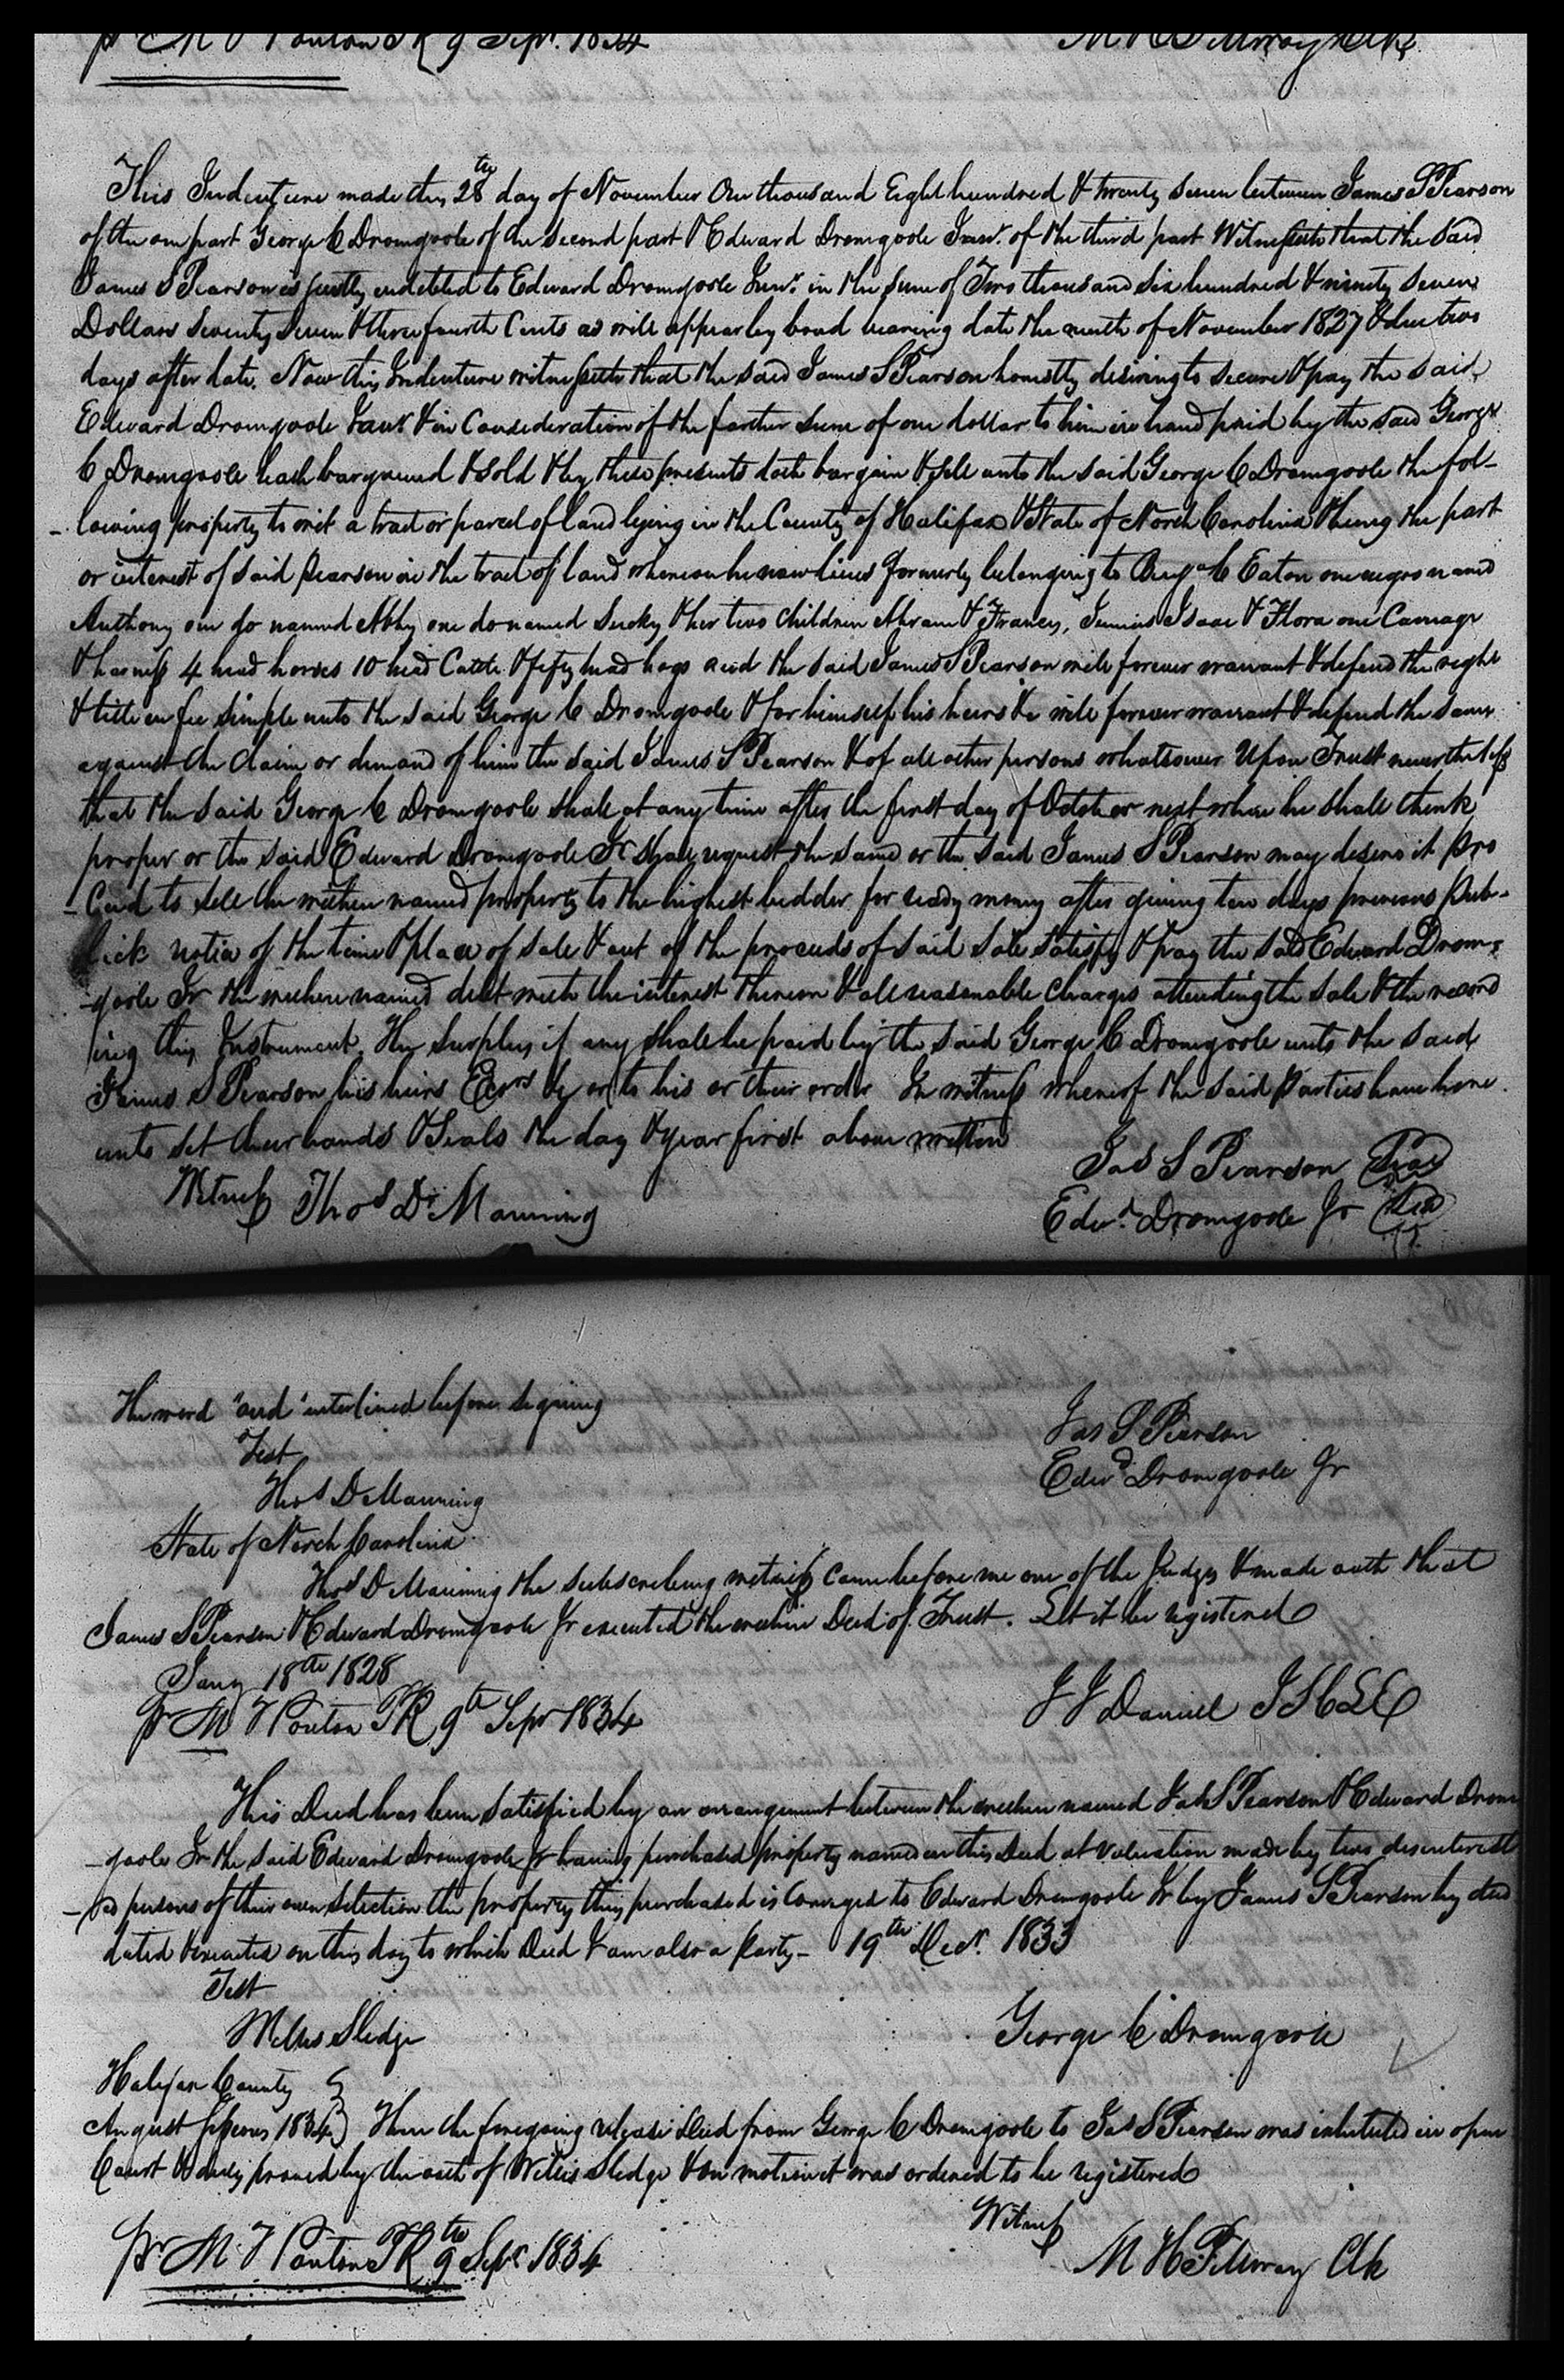 pr M T Ponton PR 9 Sepr. 1834
This Indenture made this 28th day of November One thousand Eight hundred & twenty seven between James S Pearson
of the one part George C Dromgoole of the second part & Edward Dromgoole Junr. of the third part Witnesseth that the said
James S Pearson is justly endebted to Edward Dromgoole Junr. in the sum of Two thousand Six hundred & ninety seven
Dollars Seventy seven & three fourth Cents as will appear by bond bearing date the ninth of November 1827 & due two
days after date. Now this Indenture witnesseth that the said James S Pearson honestly desiring to secure & pay the said
Edward Dromgoole Junr & in Consideration of the further sum of one dollar to him in hand paid by the said George
C Dromgoole hath bargained & sold & by these presents doth bargain & sell unto the said George C Dromgoole the fol-
lowing property to wit a tract or parcel of land lying in the County of Halifax & State of North Carolina & being the part
or interest of said Pearson in the tract of land whereon he now lives formerly belonging to Benja C Eaton one negro named
Anthony one do named Abby one do named Sucky & her two children Abram & Frances, Junius Isaac & Flora one Carriage
& harness 4 head horses 10 head Cattle & fifty head hogs and the said James S Pearson will forever warrant & defend the right
& title in fee simple unto the said George C Dromgoole & for himself his heirs &c will forever warrant & defend the same
against the claim or demand of him the said James S Pearson & of all other persons whatsoever Upon Trust nevertheless
that the said George C Dromgoole shall at any time after the first day of October next when he shall think
proper or the said Edward Dromgoole Jr shall request the same or the said James S Pearson may desire it pro
-ceed to sell the within named property to the highest bidder for ready money after giving ten days previous pub-
lick notice of the time & place of sale & out of the proceeds of said sale satisfy & pay the said Edward Drom-
-goole Jr the within named debt with the interest thereon & all reasonable charges attending the sale & the record
ing this Instrument. The surplus if any shall be paid by the said George C Dromgoole unto the said
James S Pearson his heirs Exrs &c or to his or their order In witness whereof the said Parties have here
unto set their hands & Seals the day & year first above written
Jas S Pearson Seal
Witness Thos D Manning
Edwd. Dromgoole Jr Seal
The word "and" interlined before signing
Jas S Pearson
Test
Edwd Dromgoole Jr
Thos D Manning
State of North Carolina
Thos D Manning the subscribing witness came before me one of the Judges & made oath that
James S Pearson & Edward Dromgoole Jr executed the within Deed of Trust. Let it be registered
Jany 18th 1828
J J Daniel J S C L E
pr M T Ponton PR 9th Sepr 1834
This Deed has been satisfied by an arrangement between the within named Jas S Pearson & Edward Drom
-goole Jr the said Edward Dromgoole Jr having purchased property named in this Deed at valuation made by two disinterest
-ed persons of their own selection the property thus purchased is Conveyed to Edward Dromgoole Jr by James S Pearson by deed
dated & executed on this day to which Deed I am also a Party - 19th Decr. 1833
Test
Willis Sledge
George C Dromgoole
Halifax County
August Sessions 1834 Then the foregoing release Deed from George C Dromgoole to Jas S Pearson was exhibited in open
Court & duly proved by the oath of Willis Sledge & on motion it was ordered to be registered
Witness
pr M T Ponton PR 9th Sepr 1834
M H Pettway Clk